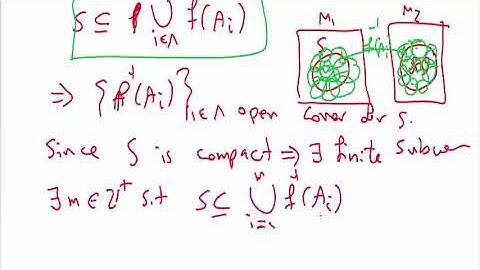 S ⊆ ⋃_{i∈Λ} f(A_i)
M_1 M_2
S f^{-1}(A_i)
⇒ { f^{-1}(A_i) }_{i∈Λ} open cover for S.
Since S is compact ⇒ ∃ finite subcover
∃ m ∈ Z^+ s.t S ⊆ ⋃_{i=1}^{m} f^{-1}(A_i)